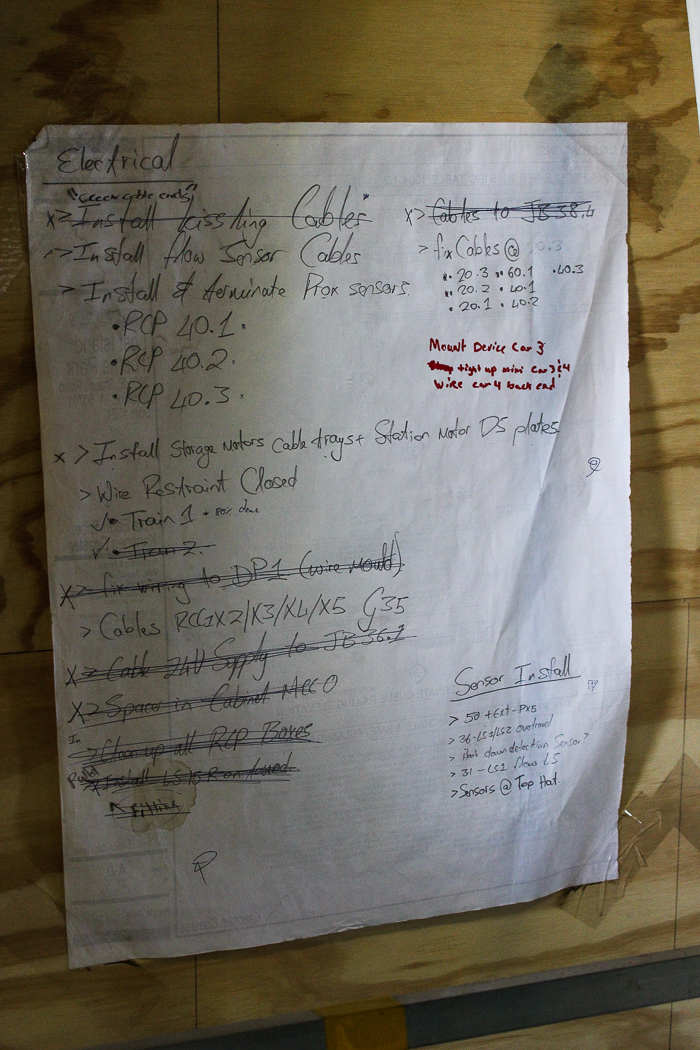 Electrical
"Green cable ends"
x > Install kissling Cables
> Install flow Sensor Cables
> Install & terminate Prox sensors
• RCP 40.1
• RCP 40.2
• RCP 40.3
x > Install Storage Motors Cable trays + Station Motor DS plates
> Wire Restraint Closed
✓ • Train 1 • 80% done
✓ • Train 2
x > fix wiring to DP1 (wire mould)
> Cables RCC1X2/X3/X4/X5 G35
x > Cable 24V Supply to JB 36.1
x > Space in Cabinet MCC0
In > Clean up all RCP Boxes
x Install LS
x > Cables to JB 38.4
> fix Cables @ 20.3
• 20.3 • 60.1 • 40.3
• 20.2 • 40.1
• 20.1 • 40.2
Mount Device Car 3
tight up mini car 3 & 4
Wire car 4 back end
Sensor Install
> 50 + Ext - PX5
> 36 - LS1/LS2 overtravel
> down detection Sensor >
> 31 - LS1 flow LS
> Sensors @ Top Hat